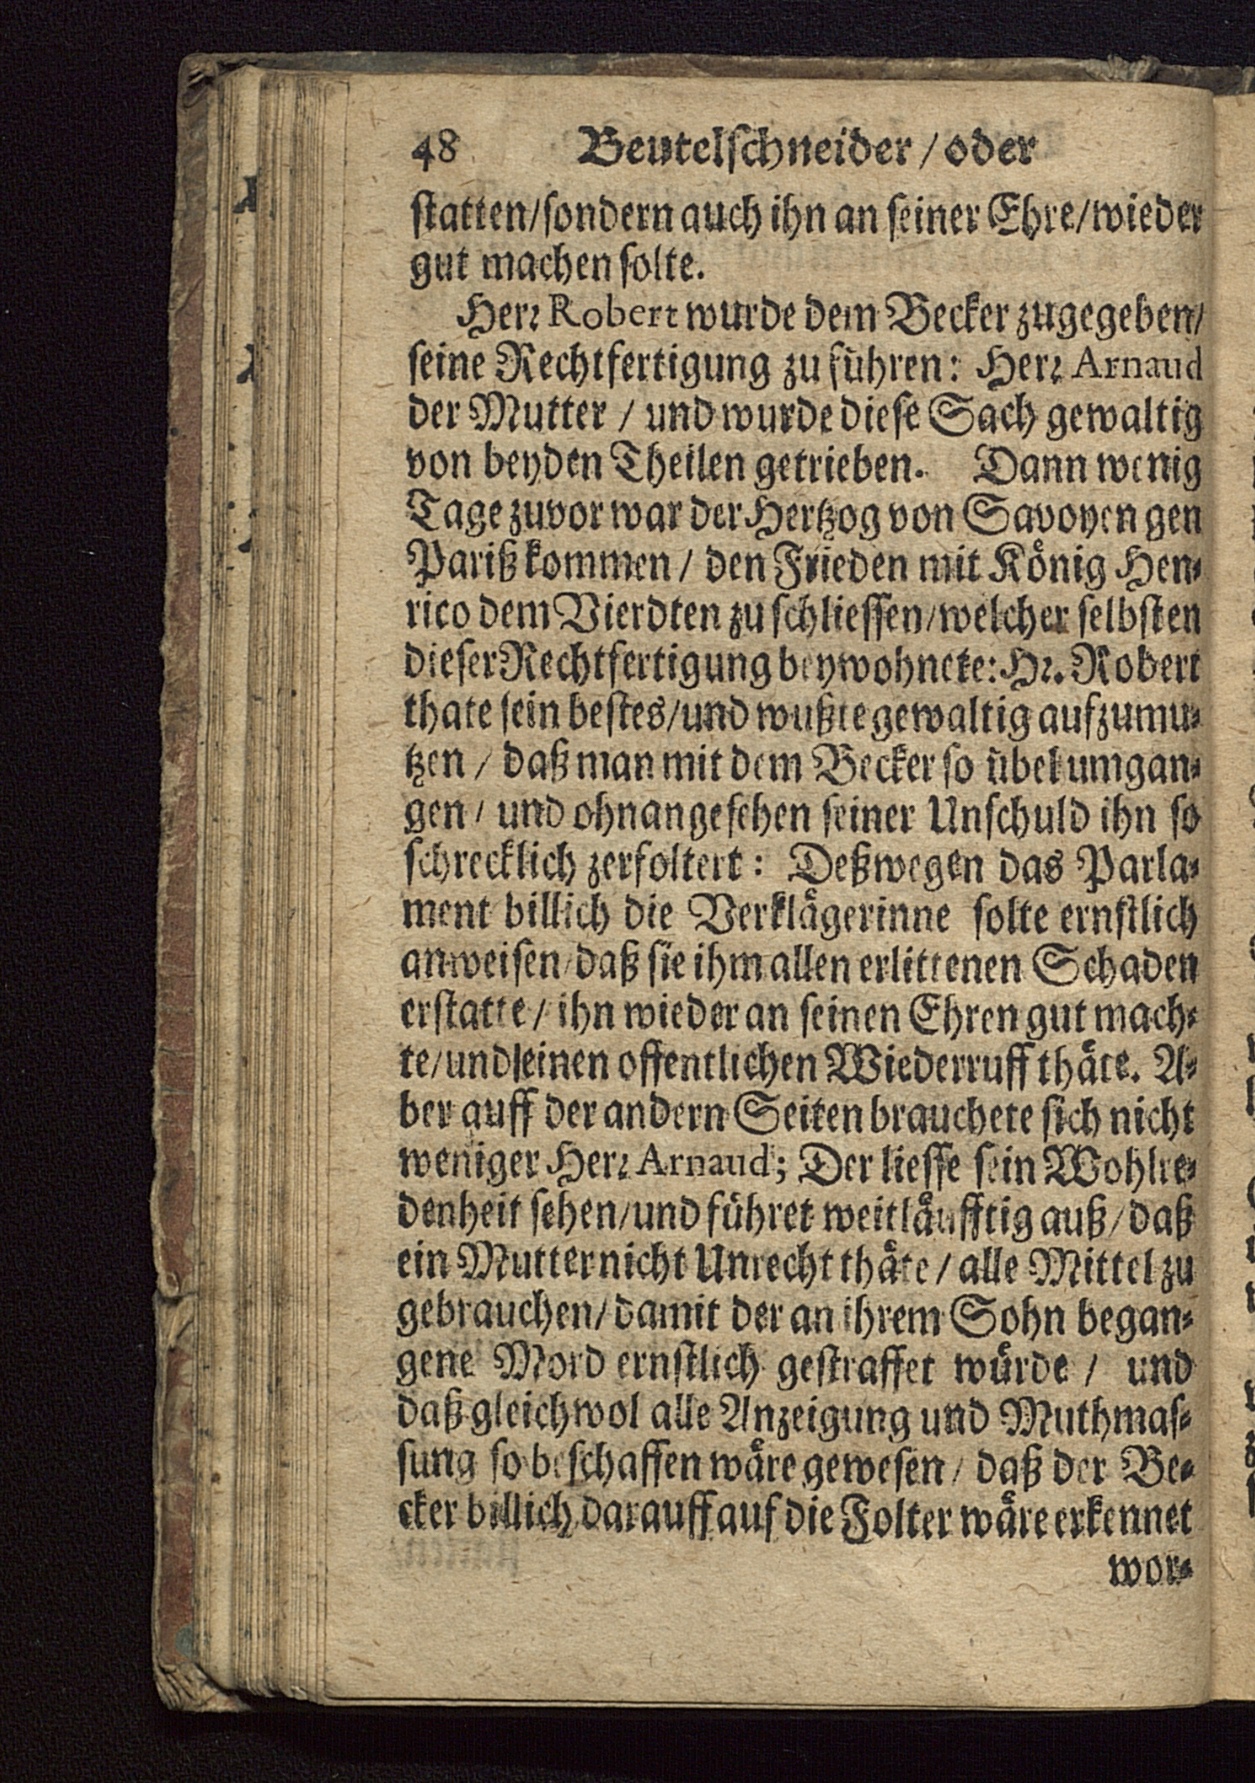 48 Beutelschneider / oder
statten/sondern auch ihn an seiner Ehre/wieder
gut machen solte.
Herꝛ Robert wurde dem Becker zugegeben/
seine Rechtfertigung zu führen: Herꝛ Arnaud
der Mutter / und wurde diese Sach gewaltig
von beyden Theilen getrieben. Dann wenig
Tage zuvor war der Hertzog von Savoyen gen
Pariß kommen / den Frieden mit König Hen-
rico dem Vierdten zu schliessen/welcher selbsten
dieser Rechtfertigung beywohnete: Hꝛ. Robert
thate sein bestes/und wußte gewaltig aufzumu-
tzen / daß man mit dem Becker so übel umgan-
gen / und ohnangesehen seiner Unschuld ihn so
schrecklich zerfoltert: Deßwegen das Parla-
ment billich die Verklägerinne solte ernstlich
anweisen/daß sie ihm allen erlittenen Schaden
erstatte / ihn wieder an seinen Ehren gut mach-
te/und einen offentlichen Wiederruff thäte. A-
ber auff der andern Seiten brauchete sich nicht
weniger Herꝛ Arnaud; Der liesse sein Wohlre-
denheit sehen/und führet weitläufftig auß/daß
ein Mutter nicht Unrecht thäte / alle Mittel zu
gebrauchen/damit der an ihrem Sohn began-
gene Mord ernstlich gestraffet würde / und
daß gleichwol alle Anzeigung und Muthmas-
sung so beschaffen wäre gewesen / daß der Be-
cker billich darauff auf die Folter wäre erkennet
wor-